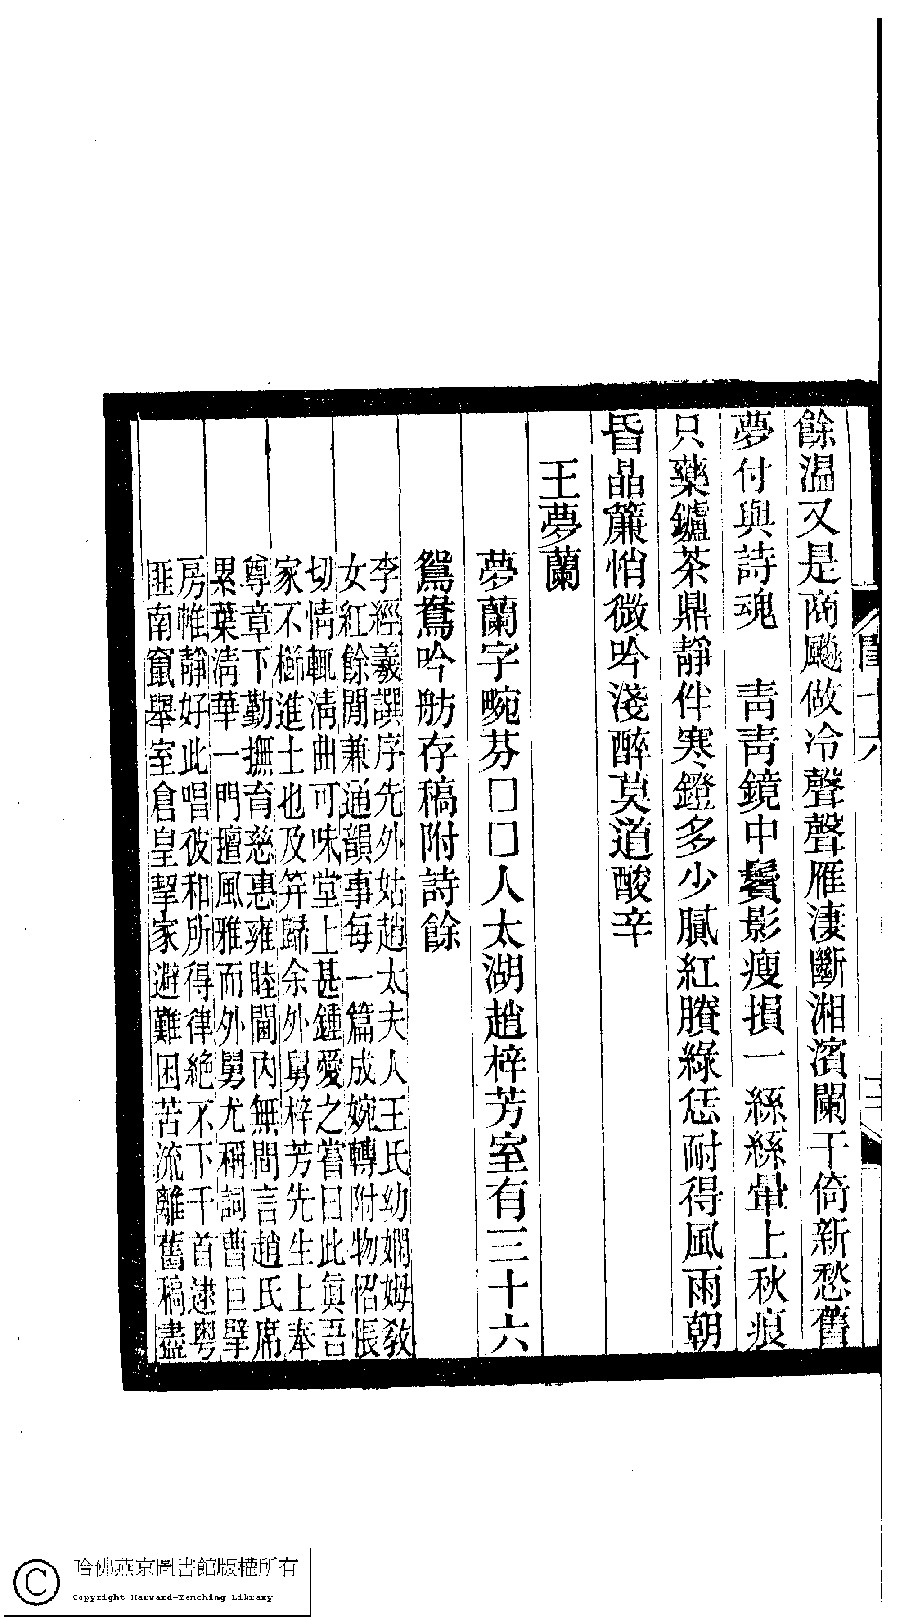 餘溫又是商颷做冷聲聲雁淒斷湘濱闌干倚新愁舊
夢付與詩魂　靑靑鏡中鬢影瘦損一絲絲暈上秋痕
只藥鑪茶鼎靜伴寒鐙多少膩紅賸綠恁耐得風雨朝
昏晶簾悄微吟淺醉莫道酸辛
王夢蘭
夢蘭字畹芬囗囗人太湖趙梓芳室有三十六
鴛鴦吟舫存稿附詩餘
李經羲譔序先外姑趙太夫人王氏幼嫻姆敎
女紅餘閒兼通韻事每一篇成婉轉附物怊悵
切情輒淸曲可味堂上甚鍾愛之嘗曰此眞吾
家不櫛進士也及笄歸余外舅梓芳先生上奉
尊章下勤撫育慈惠雍睦閫內無間言趙氏席
累葉淸華一門擅風雅而外舅尤稱詞曹巨擘
房帷靜好此唱彼和所得律絕不下千首逮粤
匪南竄舉室倉皇挈家避難困苦流離舊稿盡
閨十六
哈佛燕京圖書館版權所有
Copyright Harvard-Yenching Library